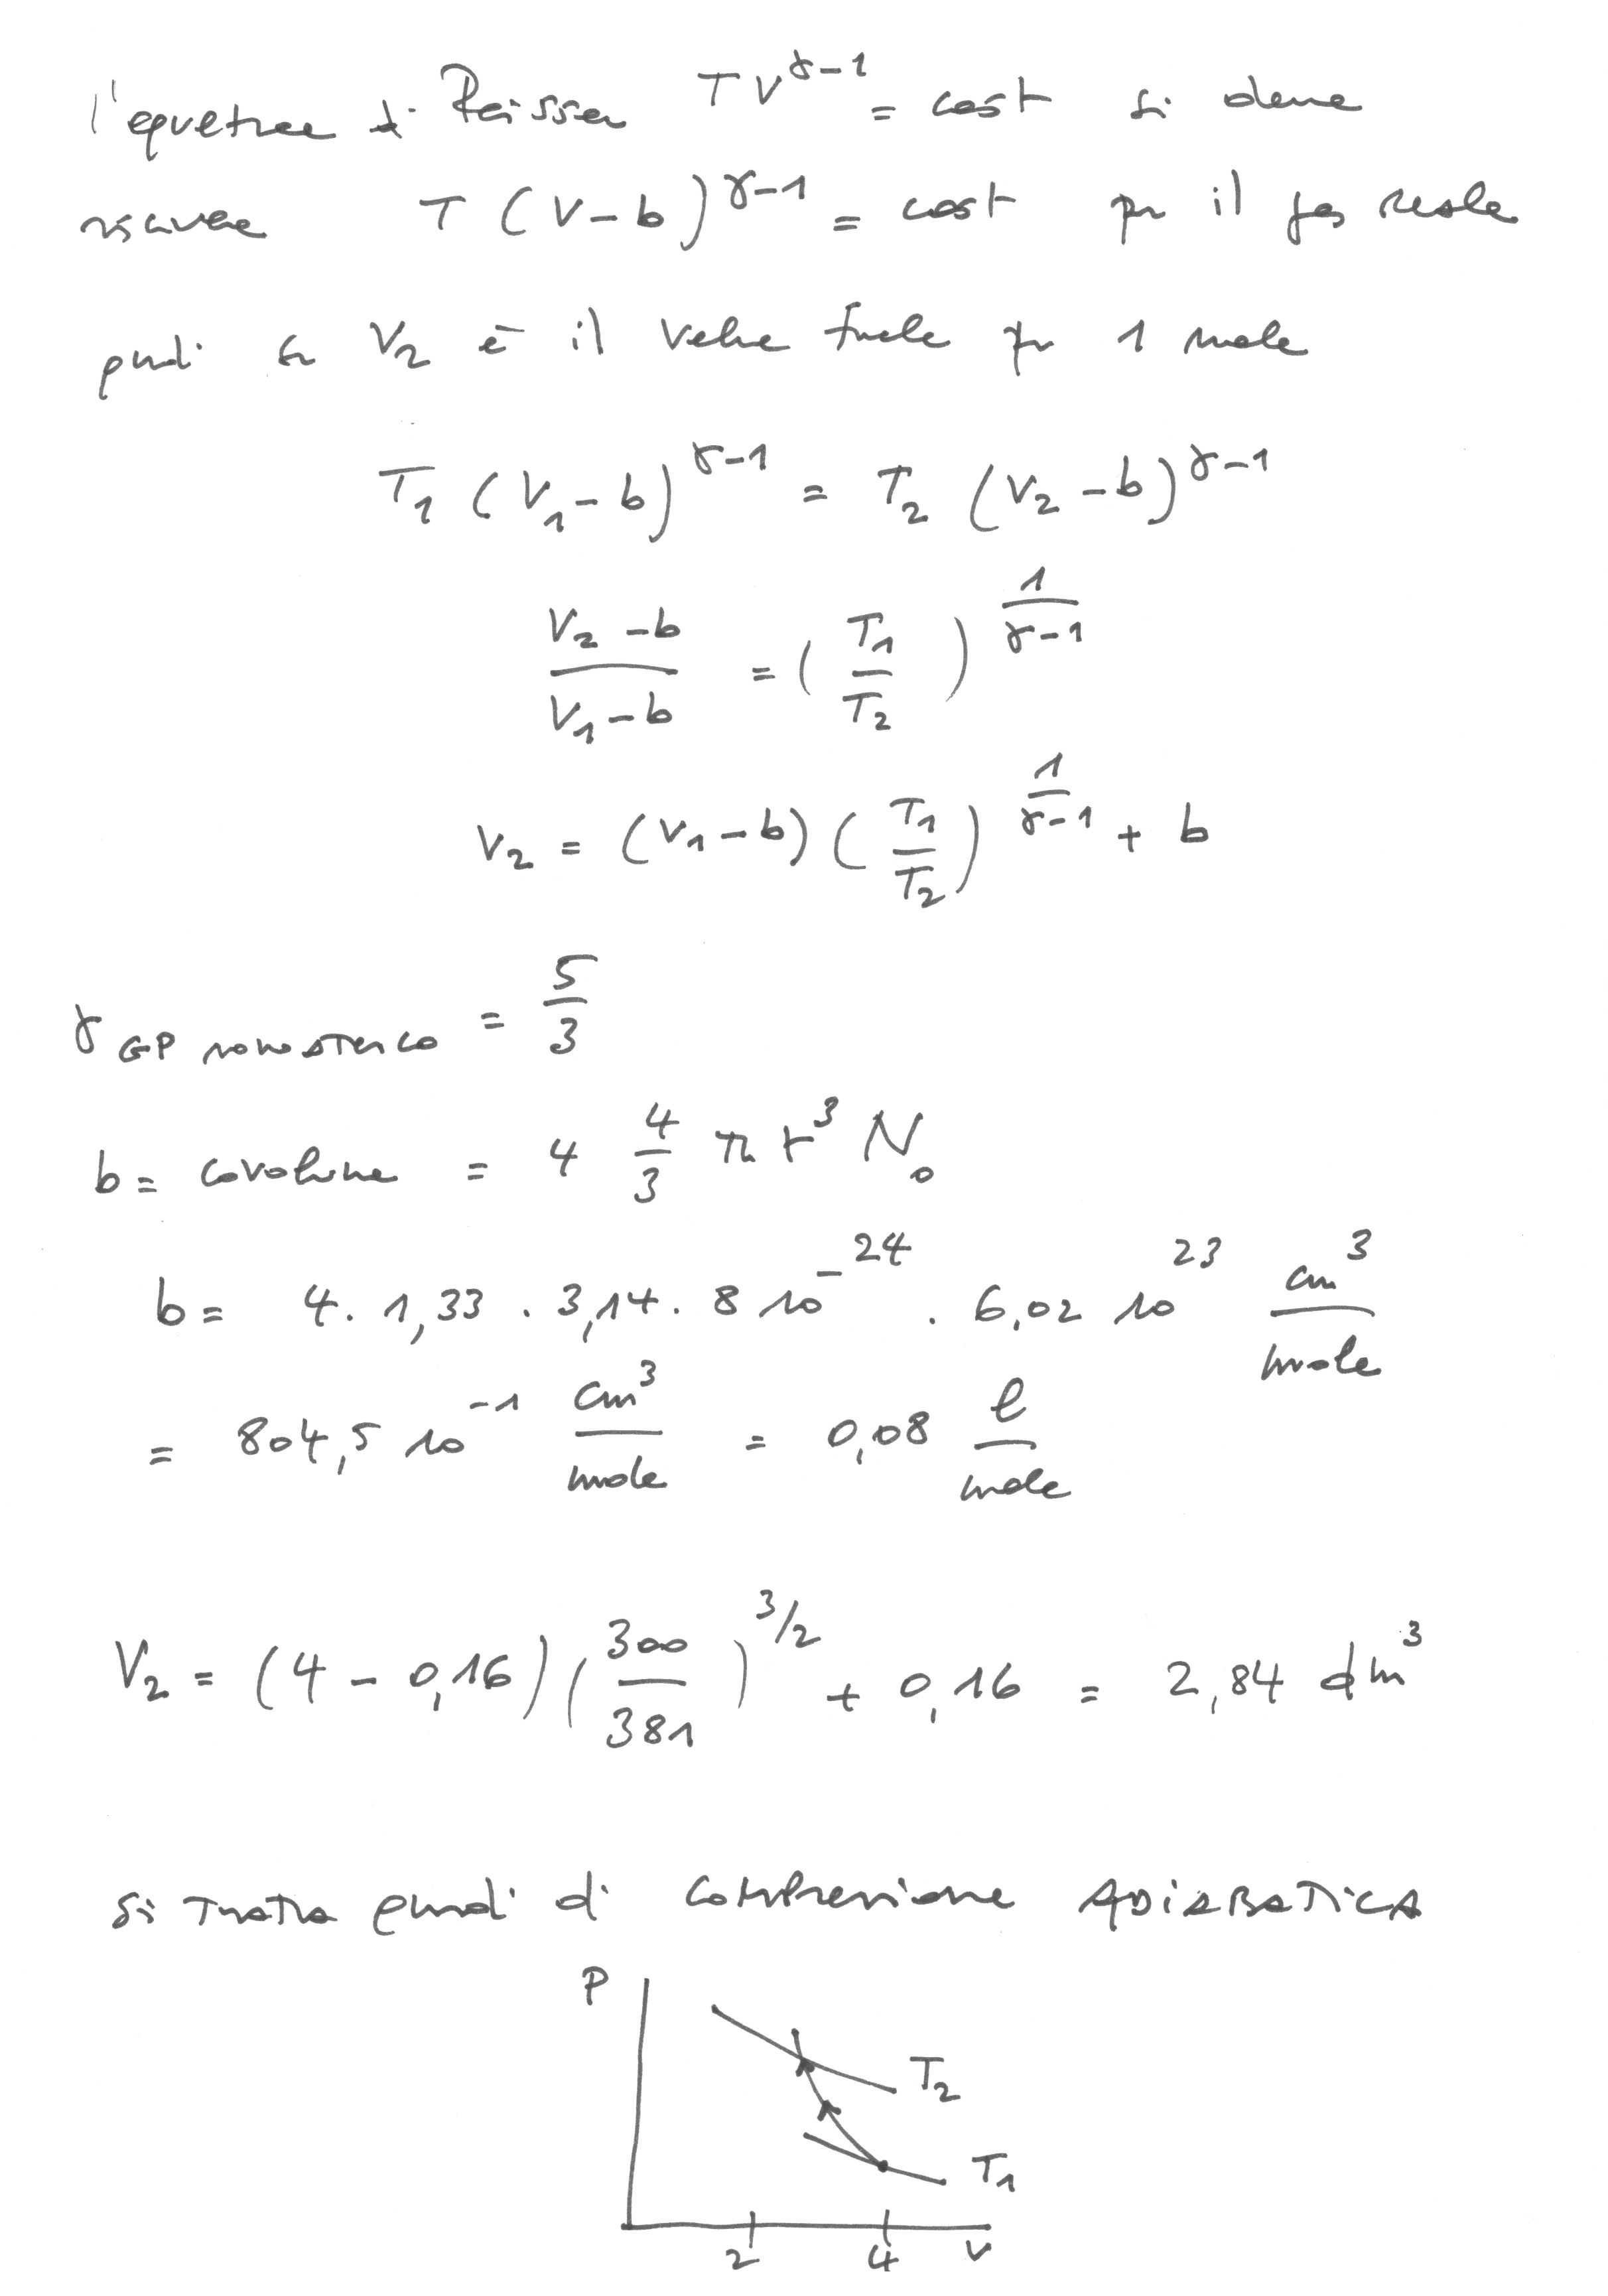 l'equazione di Poisson TV^{γ-1} = cost si deve
riscrivere T (V-b)^{γ-1} = cost per il gas reale
quindi se V₂ è il volume finale per 1 mole
T₁ (V₁-b)^{γ-1} = T₂ (V₂-b)^{γ-1}
\frac{V₂-b}{V₁-b} = (\frac{T₁}{T₂})^{\frac{1}{γ-1}}
V₂ = (V₁-b) (\frac{T₁}{T₂})^{\frac{1}{γ-1}} + b
γ GP monoatomico = \frac{5}{3}
b = covolume = 4 \frac{4}{3} π r³ N₀
b = 4 · 1,33 · 3,14 · 8 10^{-24} · 6,02 10^{23} \frac{cm³}{mole}
= 804,5 10^{-1} \frac{cm³}{mole} = 0,08 \frac{l}{mole}
V₂ = (4 - 0,16) (\frac{300}{381})^{3/2} + 0,16 = 2,84 dm³
Si tratta quindi di compressione ADIABATICA
P
T₂
T₁
2 4 V